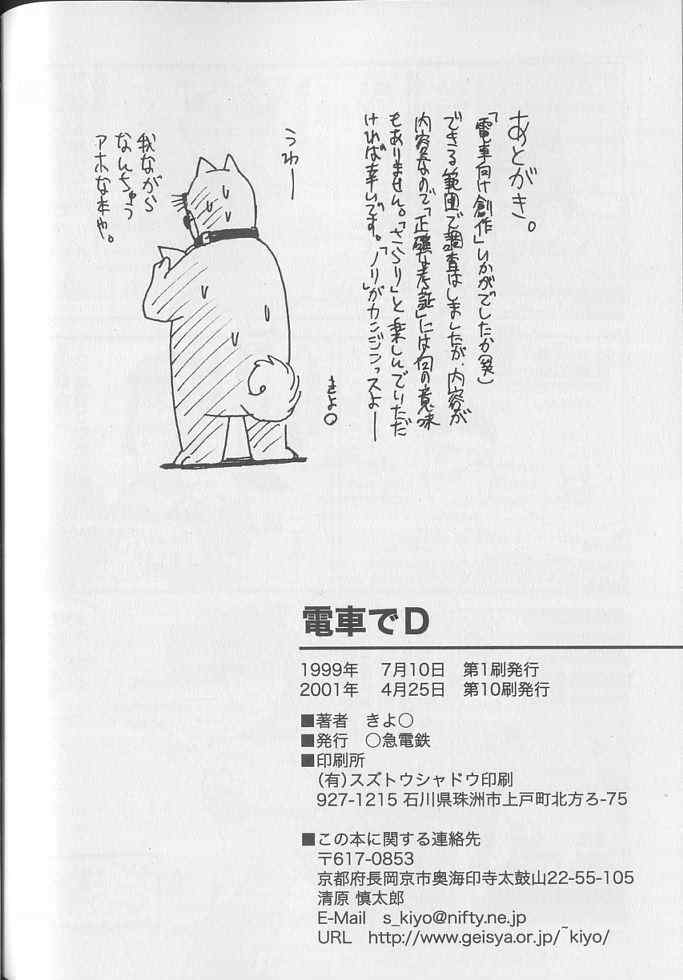 あとがき。
「電車向け創作」いかがでしたか(笑)
できる範囲で調査はしましたが、内容が
内容なので「正確な考証」には何の意味
もありません。「さらり」と楽しんでいただ
ければ幸いです。「ノリ」がカンジンっスよー
きよ○
うわー
我ながら
なんちゅう
アホな本や。
電車でD
1999年 7月10日 第1刷発行
2001年 4月25日 第10刷発行
■著者 きよ○
■発行 ○急電鉄
■印刷所
(有)スズトウシャドウ印刷
927-1215 石川県珠洲市上戸町北方ろ-75
■この本に関する連絡先
〒617-0853
京都府長岡京市奥海印寺太鼓山22-55-105
清原 慎太郎
E-Mail s_kiyo@nifty.ne.jp
URL http://www.geisya.or.jp/~kiyo/